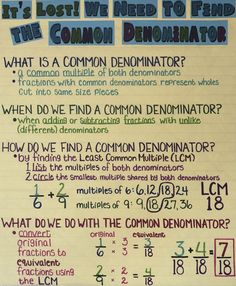 It's Lost! We Need To Find
the Common Denominator
What is a Common Denominator?
• a common multiple of both denominators
• fractions with common denominators represent wholes
cut into same size pieces
When do we find a Common Denominator?
• when adding or subtracting fractions with unlike
(different) denominators
How do we find a Common Denominator?
• by finding the Least Common Multiple (LCM)
1 list the multiples of both denominators
2 circle the smallest multiple shared by both denominators
1/6 + 2/9
multiples of 6: 6, 12, 18, 24
multiples of 9: 9, 18, 27, 36
LCM
18
What do we do with the Common Denominator?
• convert
original
fractions to
equivalent
fractions using
the LCM
original equivalent
1/6 × 3/3 = 3/18
2/9 × 2/2 = 4/18
3/18 + 4/18 = 7/18